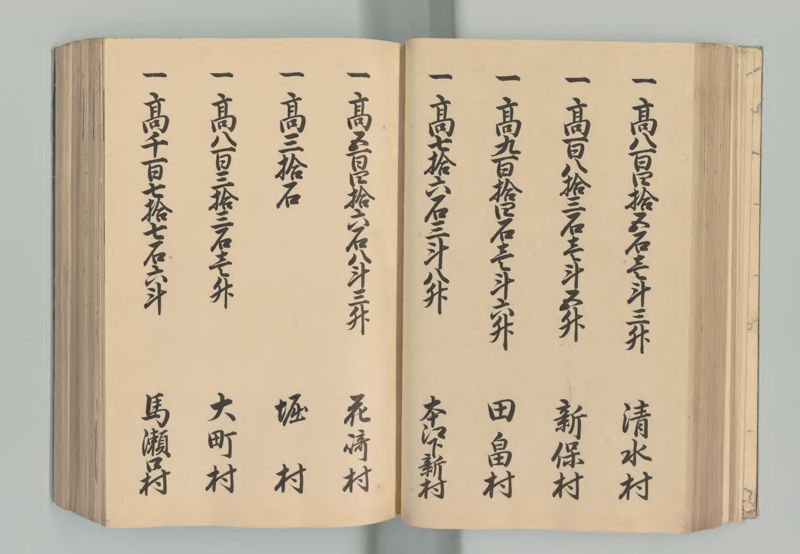 一 高八百四拾五石壱斗三升 清水村
一 高百八拾三石壱斗五升 新保村
一 高九百拾四石壱斗六升 田畠村
一 高七拾六石三斗八升 本江下新村
一 高五百四拾六石八斗三升 花崎村
一 高三拾石 堀村
一 高八百三拾三石壱升 大町村
一 高千百七拾七石六斗 馬瀬口村